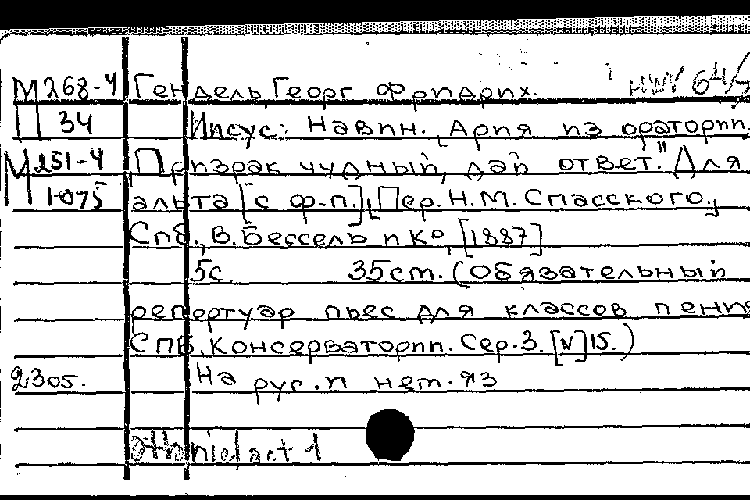 М 268-4 Гендель, Георг Фридрих. HWV 64/
П 34 Иисус Навин. Ария из оратории
М 251-4 "Призрак чудный, дай ответ." Для
1075 альта [с ф-п.] [Пер. Н.М. Спасского.]
Спб., В. Бессель и К°, [1887]
5с 35см. (Обязательный
репертуар пьес для классов пения
СПб. Консерватории. Сер.3. [N]15.)
2305. На рус. и нем. яз
Othniel act 1